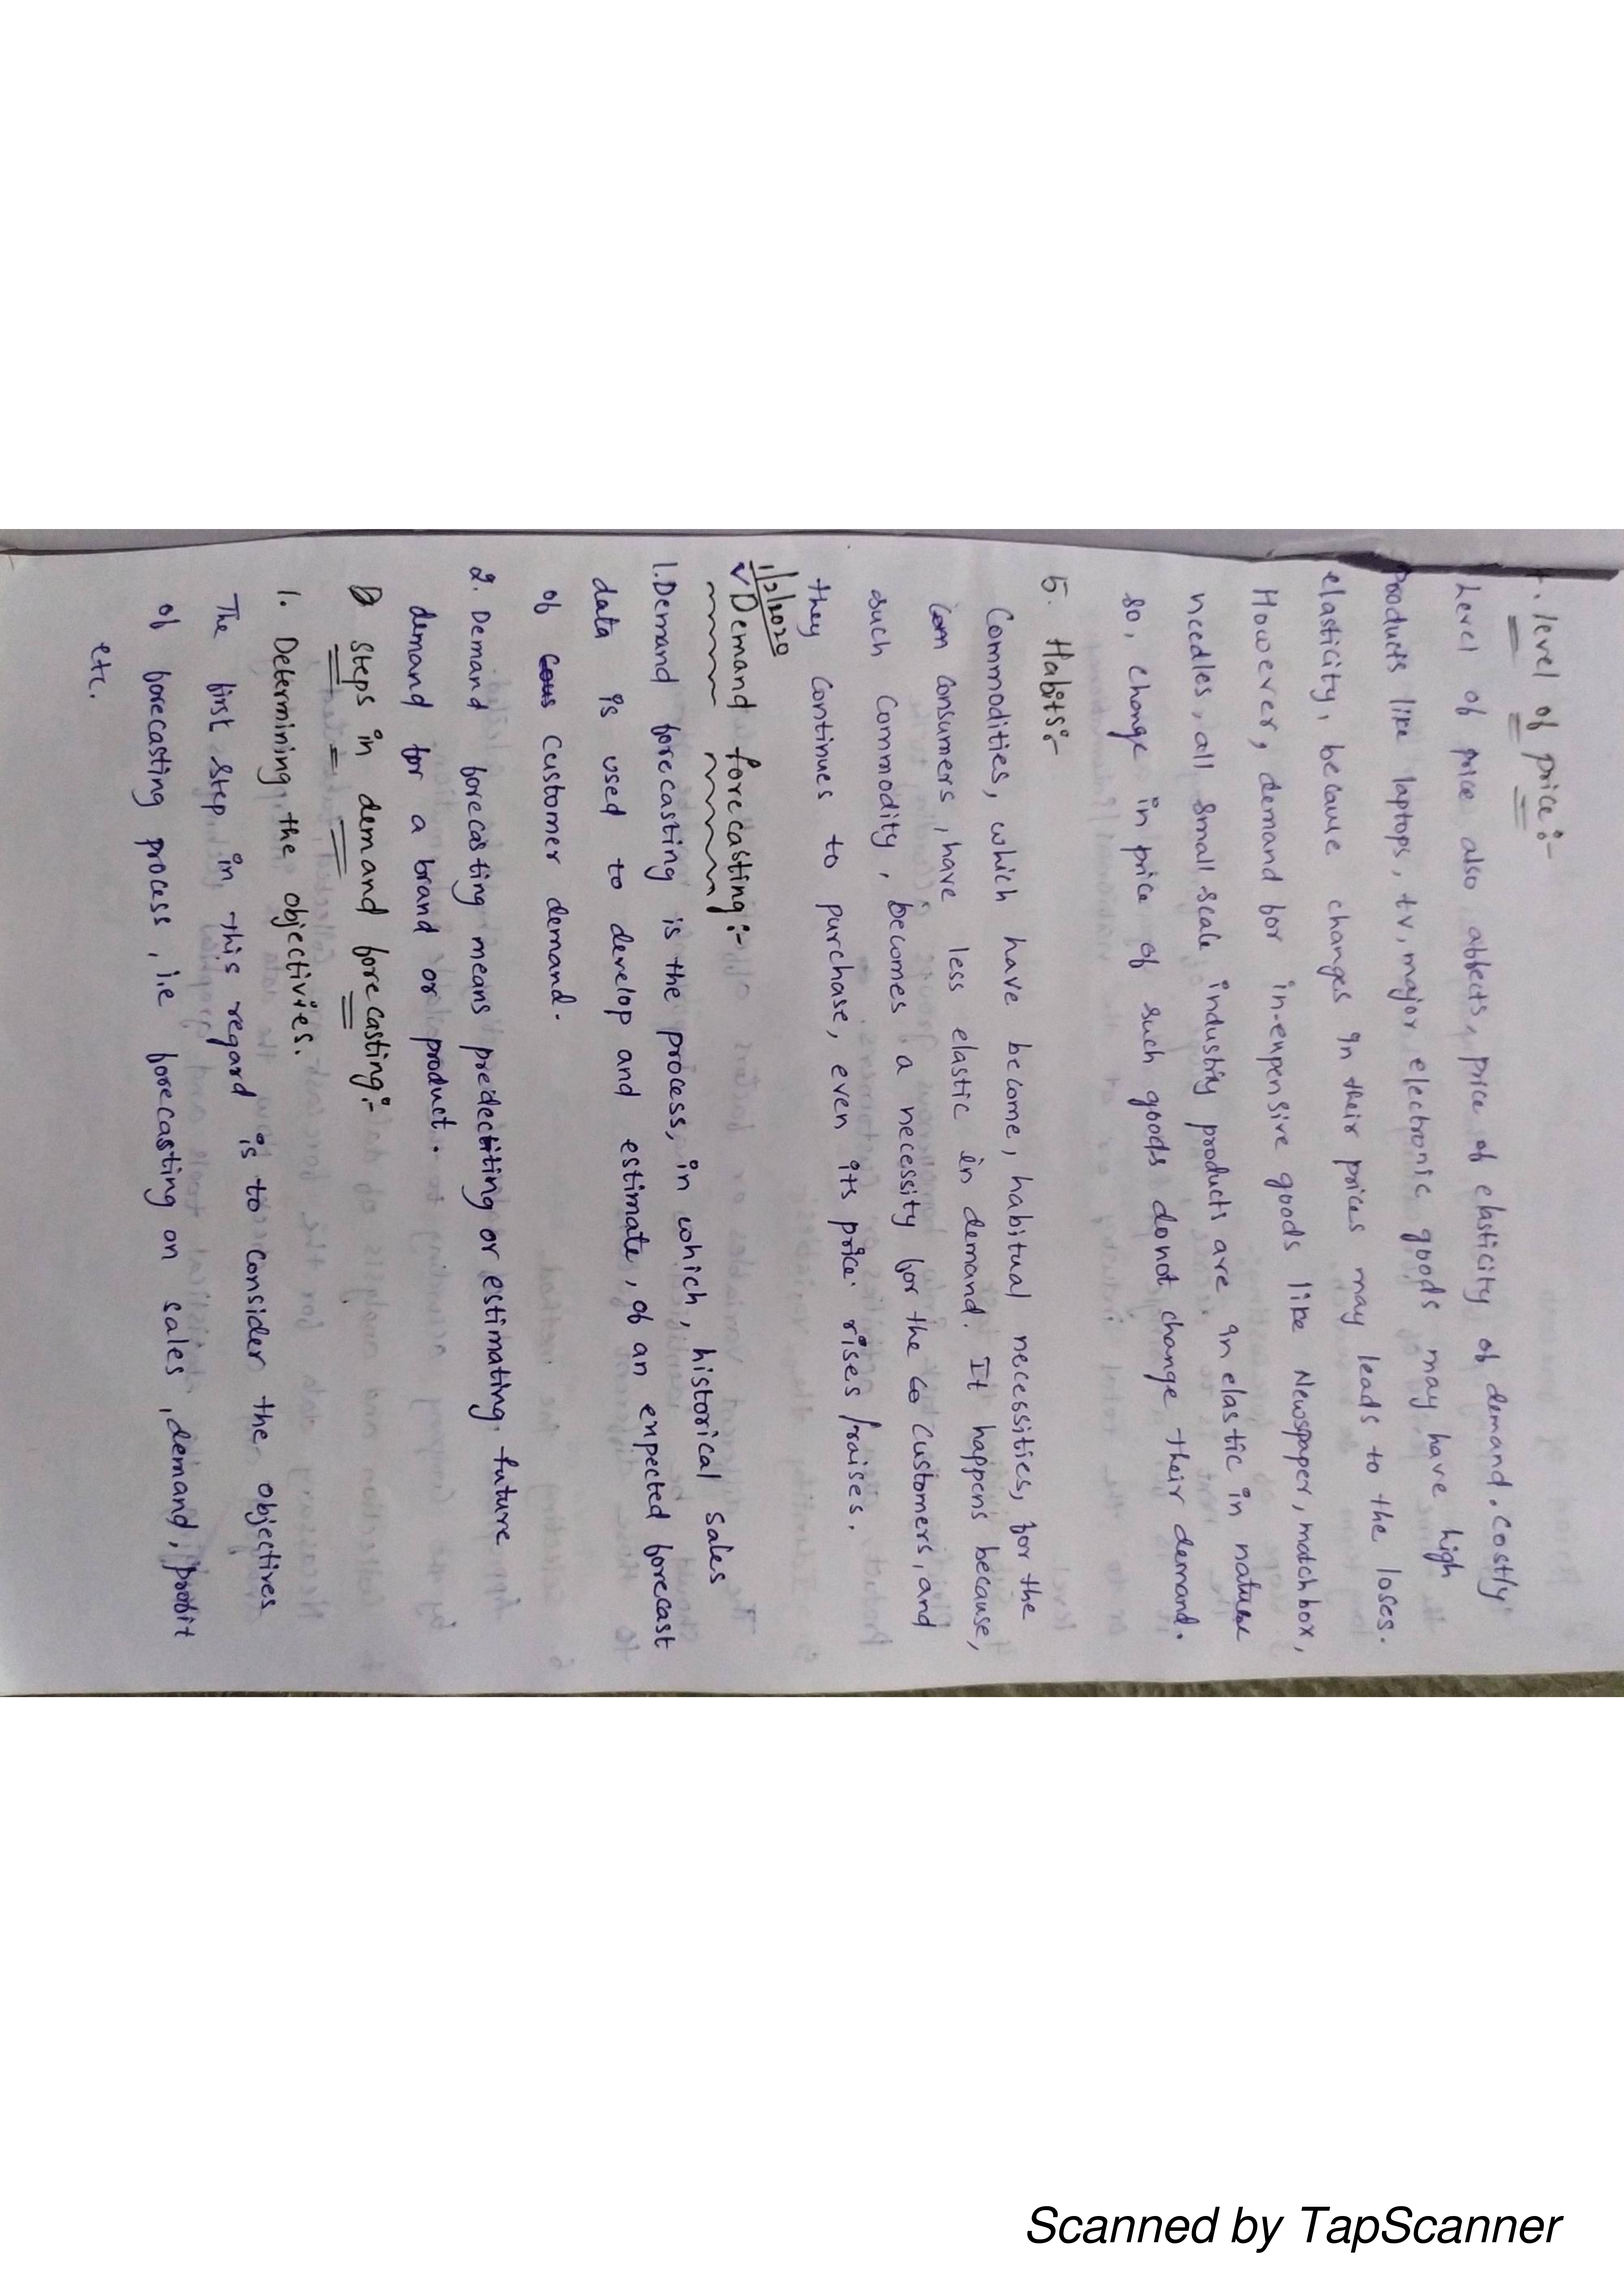 4. level of price:-
Level of price also affects, price of elasticity of demand. Costly
Products like laptops, tv, major electronic goods may have high
elasticity, because changes in their prices may leads to the loses.
However, demand for in-expensive goods like Newspaper, match box,
needles, all small scale industriy products are in elastic in nature
so, change in price of such goods donot change their demand.
5. Habits:-
Commodities, which have become, habitual necessities, for the
consumers, have less elastic in demand. It happens because,
such Commodity, becomes a necessity for the customers, and
they continues to purchase, even its price rises /raises.
1/2/2020
✓ Demand forecasting:-
1. Demand forecasting is the process, in which, historical sales
data is used to develop and estimate, of an expected forecast
of customer demand.
2. Demand forecasting means predectiting or estimating future
demand for a brand or product.
Steps in demand forecasting:-
1. Determining the objectivies.
The first step in this regard is to consider the objectives
of forecasting process, i.e forecasting on sales, demand, profit
etc.
Scanned by TapScanner